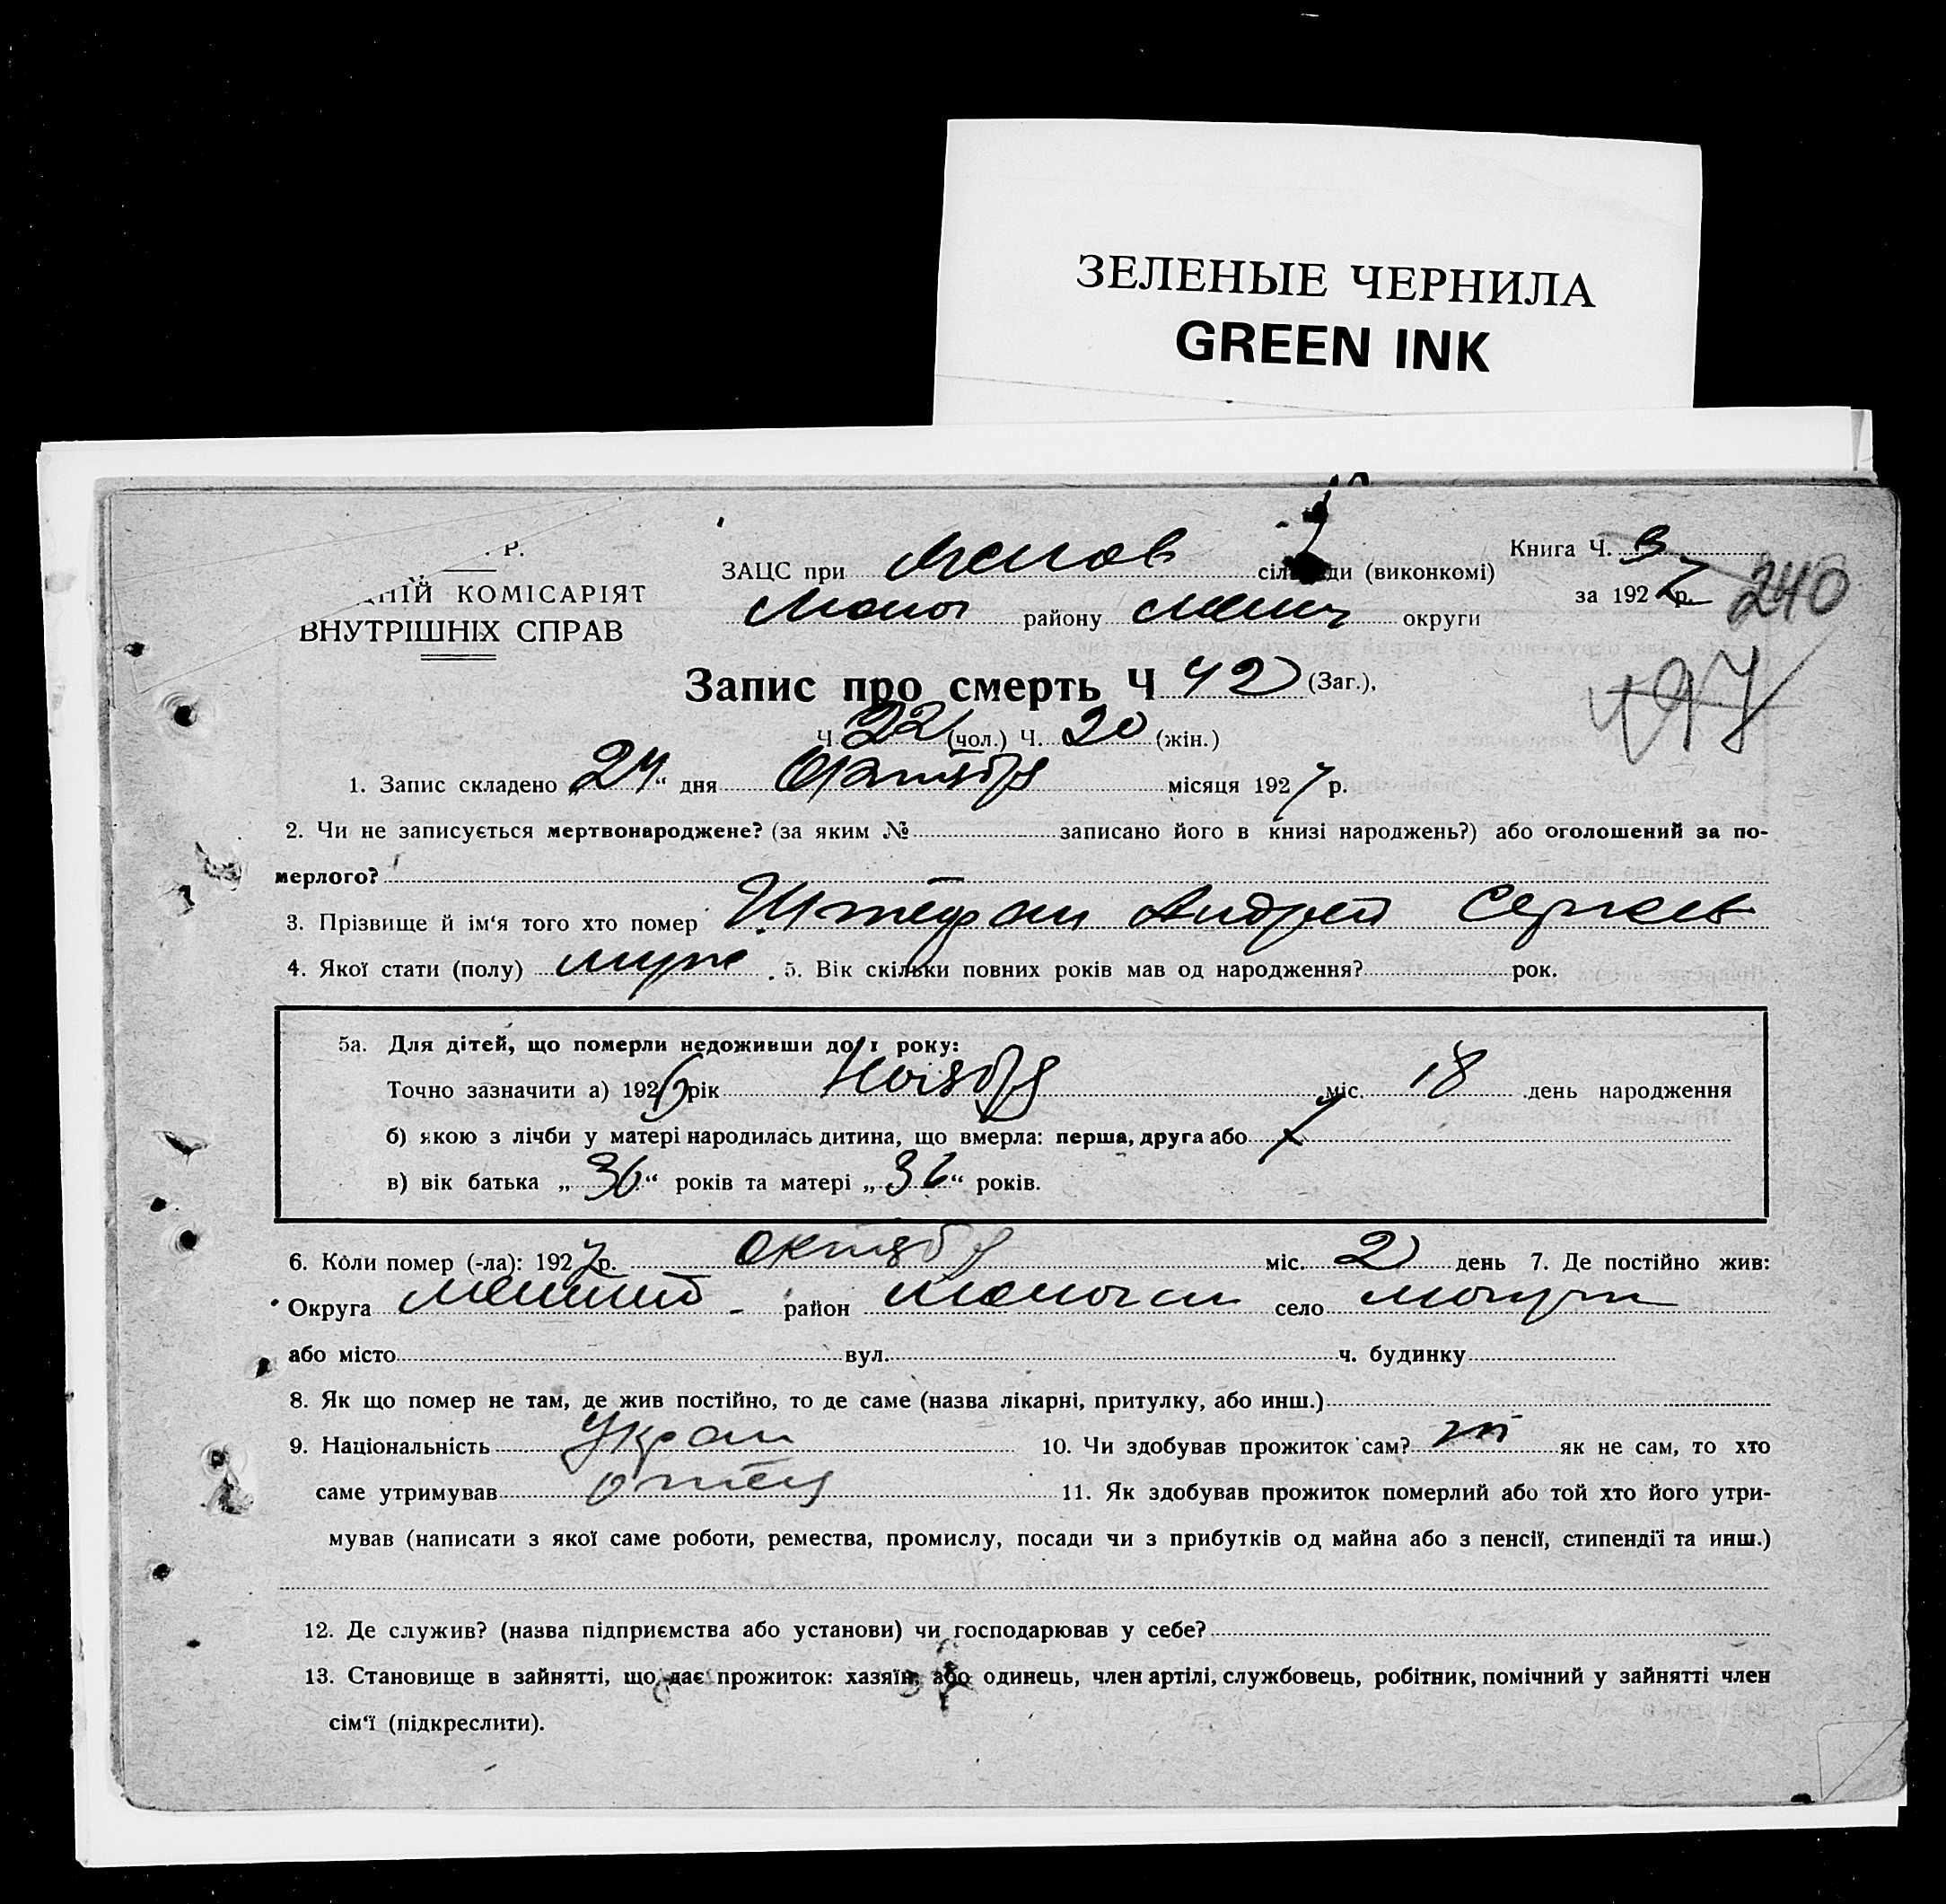 ЗЕЛЕНЫЕ ЧЕРНИЛА
GREEN INK
Р.
КОМІСАРІЯТ
ВНУТРІШНІХ СПРАВ
ЗАЦС при (виконкомі)
району округи
Книга Ч. 3
за 1927 р.
240
Запис про смерть Ч 42 (Заг.),
497
Ч. 22 (чол.) Ч. 20 (жін.)
1. Запис складено „24“ дня Октября місяця 1927 р.
2. Чи не записується мертвонароджене? (за яким № записано його в книзі народжень?) або оголошений за по-
мерлого?
3. Прізвище й ім‘я того хто помер Штефан Андрей Сергеев
4. Якої стати (полу) муж. 5. Вік скільки повних років мав од народження? рок.
5а. Для дітей, що померли недоживши до 1 року:
Точно зазначити а) 1926 рік Ноября міс. 18 день народження
б) якою з лічби у матері народилась дитина, що вмерла: перша, друга або
в) вік батька „36“ років та матері „36“ років.
6. Коли помер (-ла): 1927 р. октября міс. 2 день 7. Де постійно жив:
Округа район село
або місто вул. ч. будинку
8. Як що помер не там, де жив постійно, то де саме (назва лікарні, притулку, або инш.)
9. Національність Украи 10. Чи здобував прожиток сам? як не сам, то хто
саме утримував отец 11. Як здобував прожиток померлий або той хто його утри-
мував (написати з якої саме роботи, ремества, промислу, посади чи з прибутків од майна або з пенсії, стипендії та инш.)
12. Де служив? (назва підприємства або установи) чи господарював у себе?
13. Становище в зайнятті, що дає прожиток: хазяїн, або одинець, член артілі, службовець, робітник, помічний у зайнятті член
сім‘ї (підкреслити).